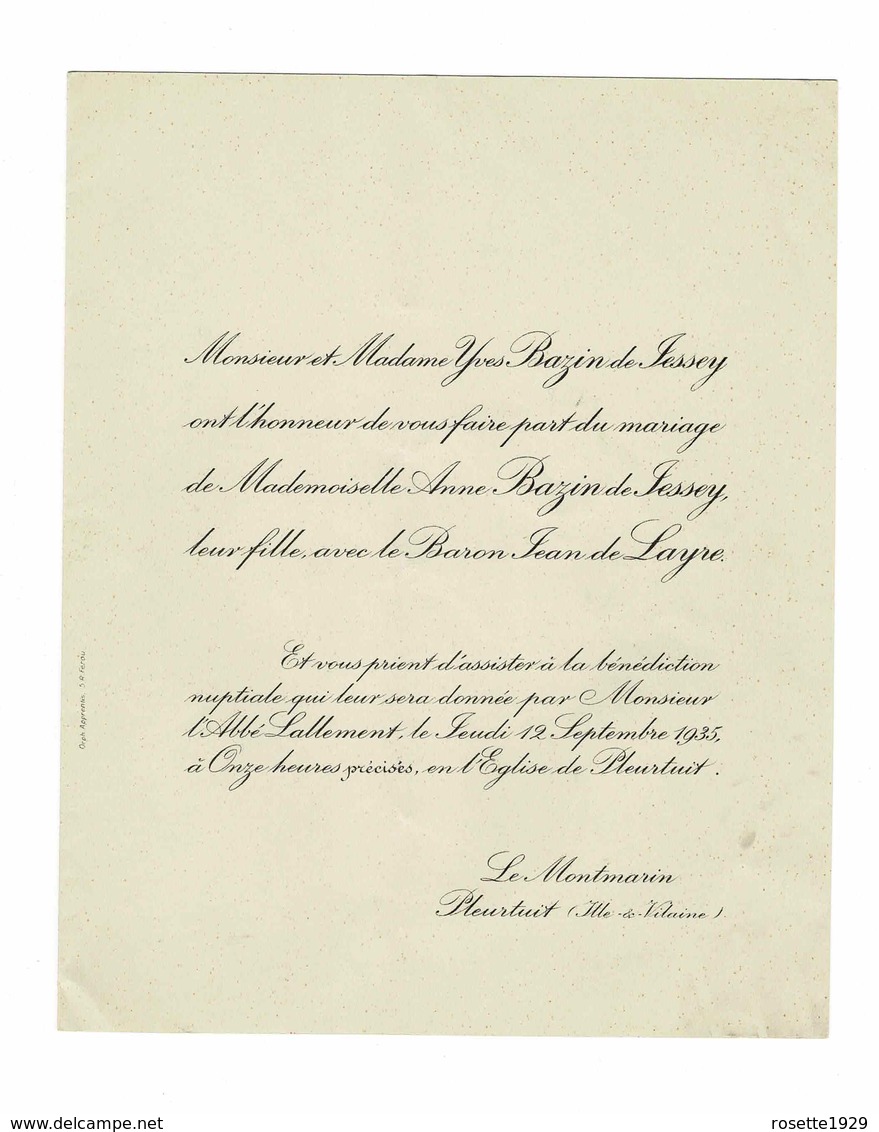 Monsieur et Madame Yves Bazin de Jessey
ont l'honneur de vous faire part du mariage
de Mademoiselle Anne Bazin de Jessey,
leur fille, avec le Baron Jean de Layre.
Et vous prient d'assister à la bénédiction
nuptiale qui leur sera donnée par Monsieur
l'Abbé Lallement, le Jeudi 12 Septembre 1935,
à Onze heures précises, en l'Eglise de Pleurtuit.
Le Montmarin
Pleurtuit (Ille-&-Vilaine)
Orph. Apprentis. 5. R. Férou
www.delcampe.net
rosette1929